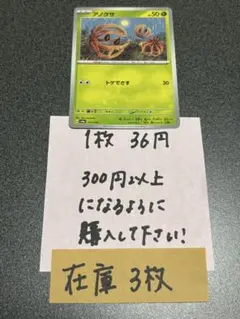 アノクサ
50
トゲでさす 30
1枚 36円
300円以上
になるように
購入して下さい!
在庫 3枚